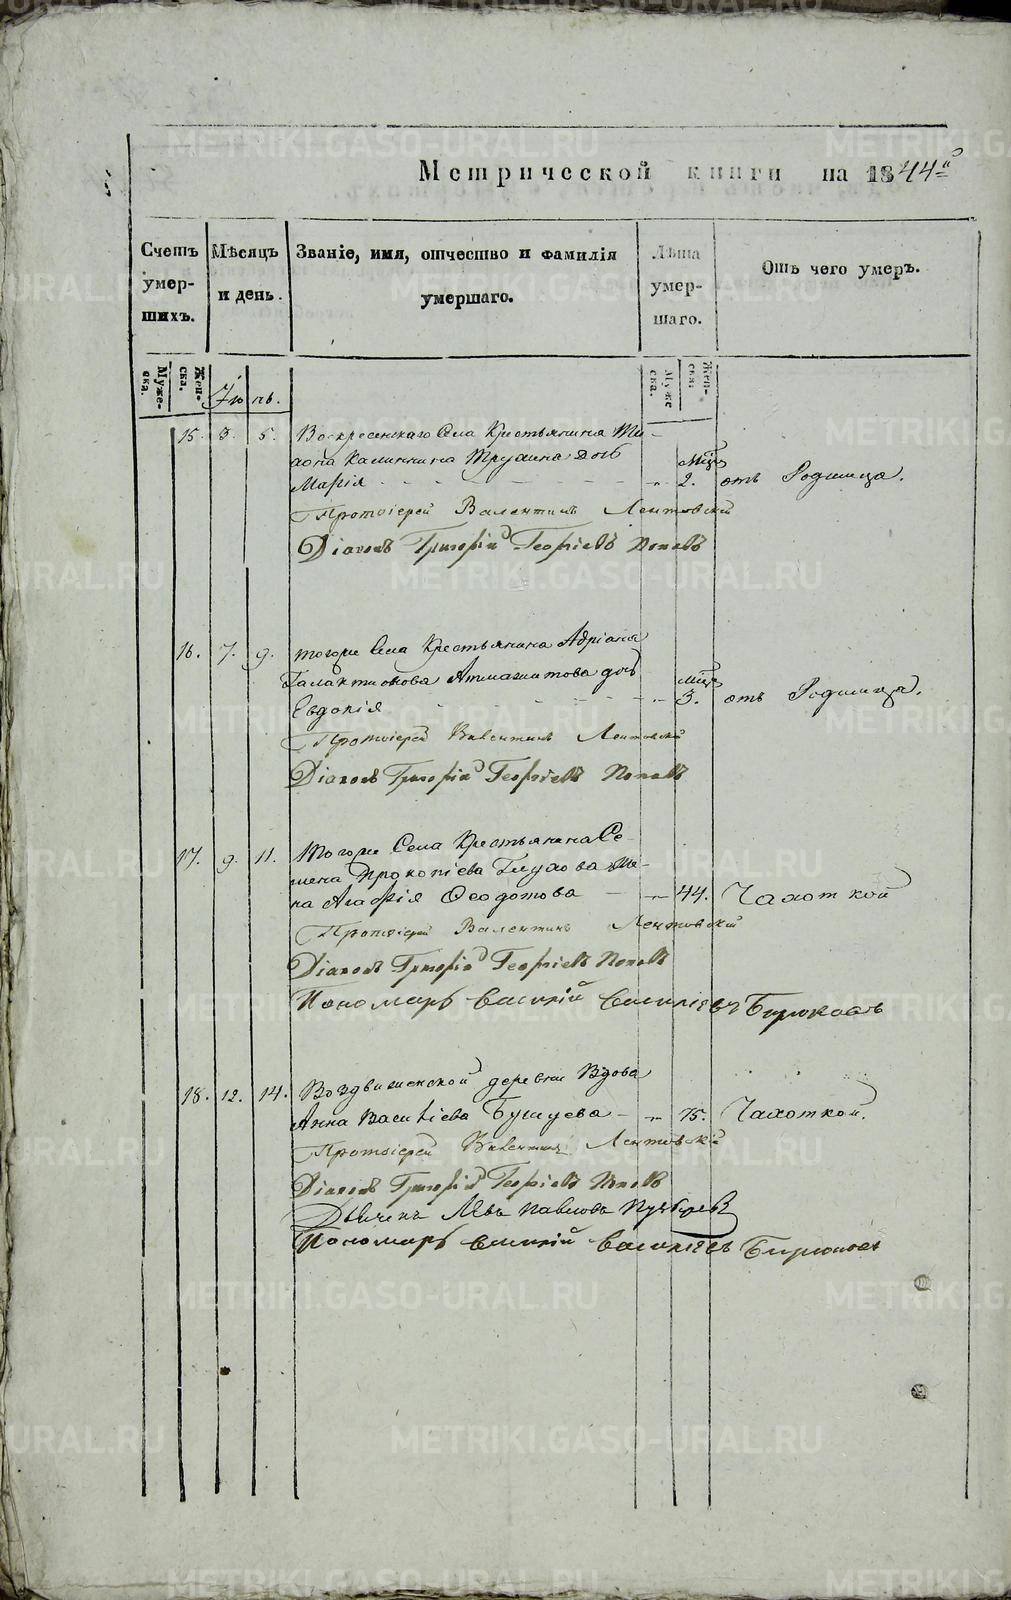 Метрической книги на 1844й
Счетъ умер-шихъ.
Мѣсяцъ и день.
Званіе, имя, отчество и фамилія умершаго.
Лѣта умер-шаго.
Отъ чего умеръ.
Муже-ска.
Жен-ска.
Муже ска.
Жен-ска:
Іюнь.
15. 3. 5. Воскресенскаго Села Крестьянина Ти-
Калинина дочь Мцъ
Марія - - - - - " 2. отъ Родимца.
Протоіерей Валентинъ Лентовскій
Діаконъ Григорій Георгіевъ Поповъ
16. 7. 9. тогоже Села Крестьянина Адріана
Галактионова дочь Мцъ
Евдокія - - - - - " 3. отъ Родимца.
Протоіерей Валентинъ Лентовскій
Діаконъ Григорій Георгіевъ Поповъ
17. 9. 11. Тогоже Села Крестьянина Се-
мена Прокопіева Глухова же-
на Агафія Ѳеодотова - " 44. Чахоткой
Протоіерей Валентинъ Лентовскій
Діаконъ Григорій Георгіевъ Поповъ
Пономарь Василій Василіевъ Бирюковъ
18. 12. 14. Воздвиженской деревни Вдова
Анна Василіева Бушуева - " 75. Чахоткой.
Протоіерей Валентинъ Лентовскій
Діаконъ Григорій Георгіевъ Поповъ
Дьячекъ Левъ Павловъ
Пономарь Василій Василіевъ Бирюковъ
METRIKI.GASO-URAL.RU